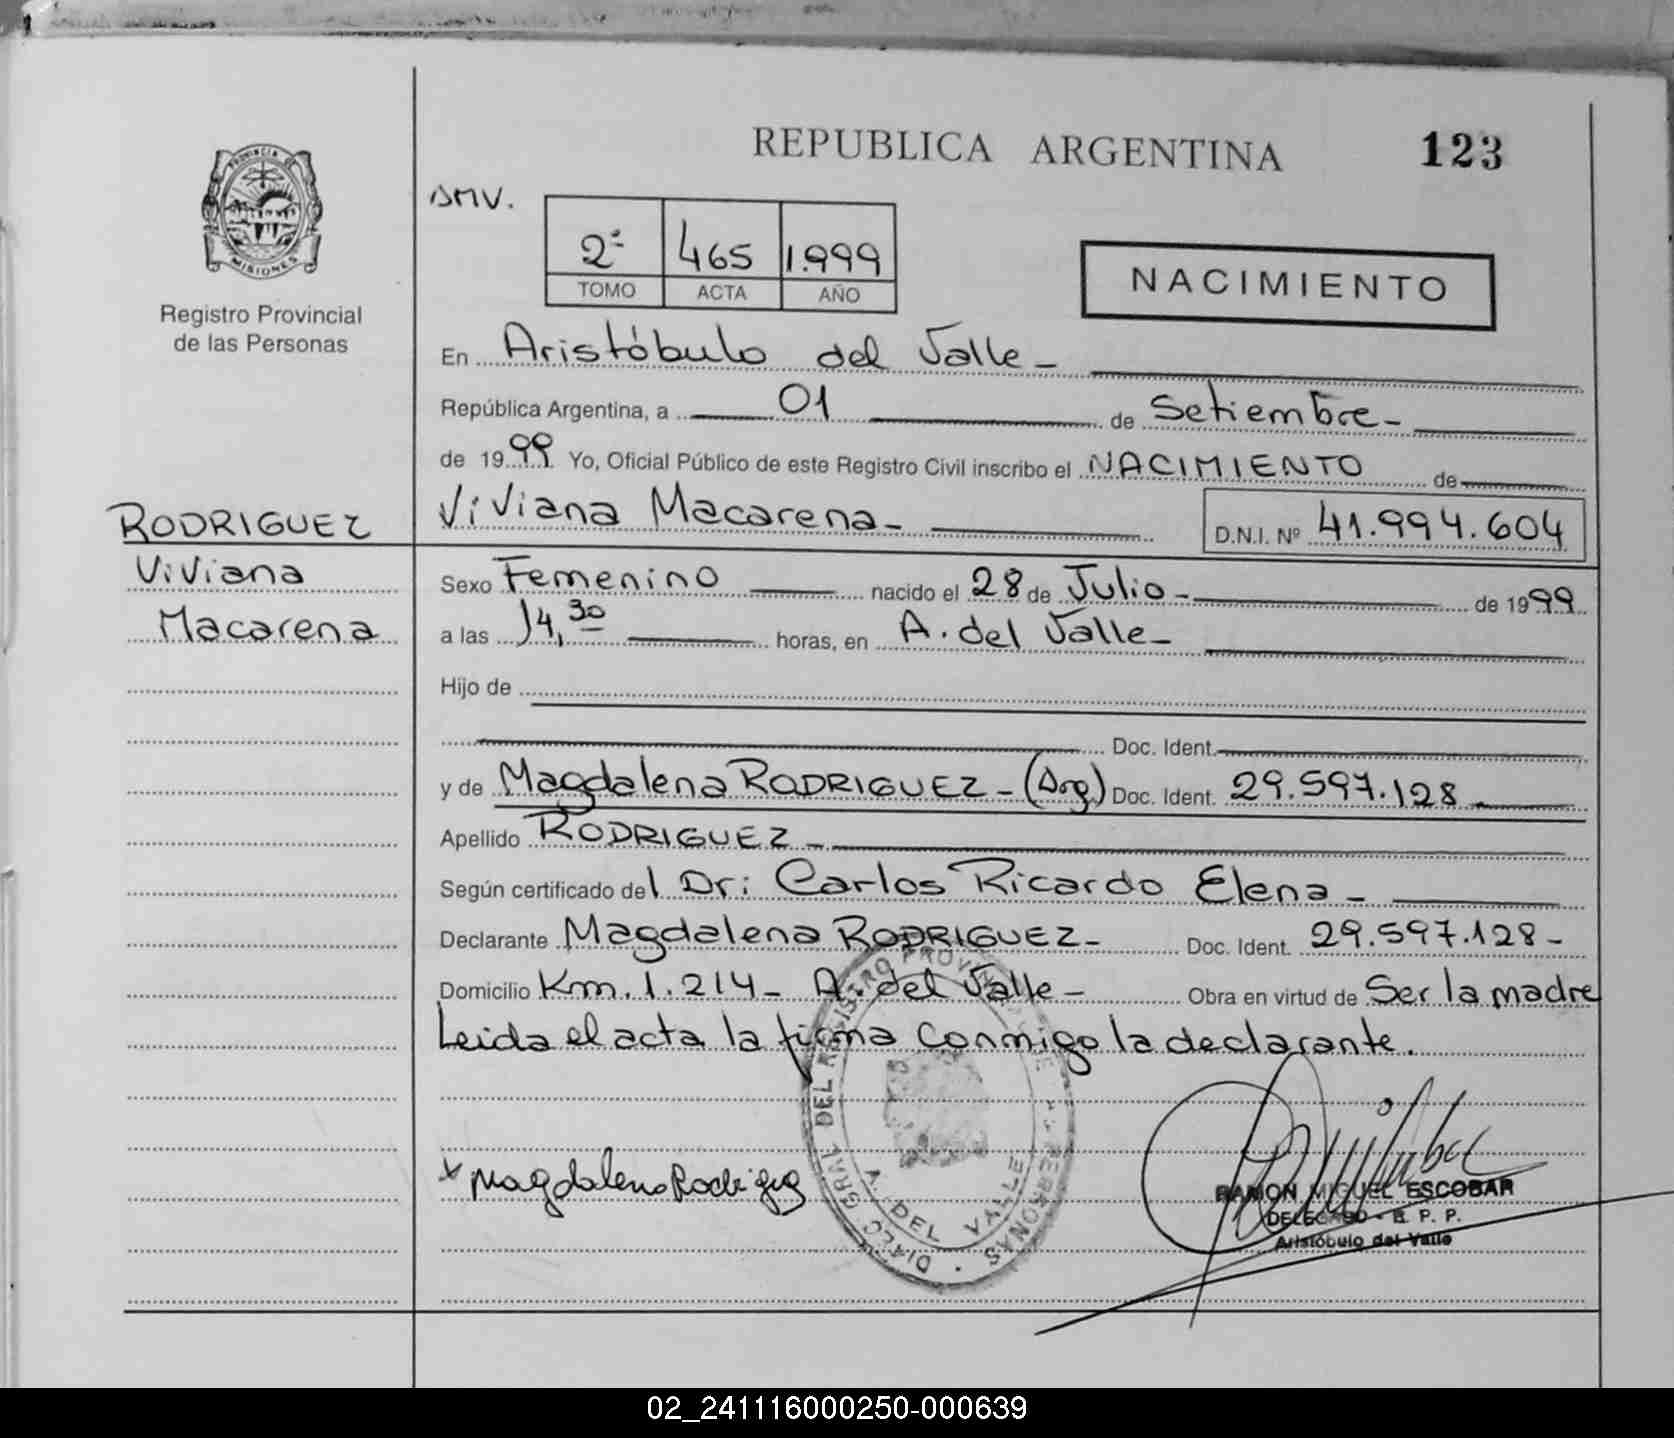 REPUBLICA ARGENTINA
123
PROVINCIA DE
MISIONES
Registro Provincial
de las Personas
2ª 465 1.999
TOMO ACTA AÑO
NACIMIENTO
En Aristóbulo del Valle -
República Argentina, a 01 de Setiembre -
de 1999 Yo, Oficial Público de este Registro Civil inscribo el NACIMIENTO de
RODRIGUEZ
Viviana
Macarena
Viviana Macarena - D.N.I. Nº 41.994.604
Sexo Femenino nacido el 28 de Julio - de 1999
a las 14,30 horas, en A. del Valle -
Hijo de
Doc. Ident.
y de Magdalena RODRIGUEZ - (Arg) Doc. Ident. 29.597.128
Apellido RODRIGUEZ -
Según certificado del Dr: Carlos Ricardo Elena -
Declarante Magdalena RODRIGUEZ - Doc. Ident. 29.597.128 -
Domicilio Km. 1.214 - A. del Valle - Obra en virtud de Ser la madre
Leida el acta la firma conmigo la declarante.
x Magdalena Rodrigez
A. DEL VALLE
RAMON MIGUEL ESCOBAR
DELEGADO - R. P. P.
Aristóbulo del Valle
02_241116000250-000639